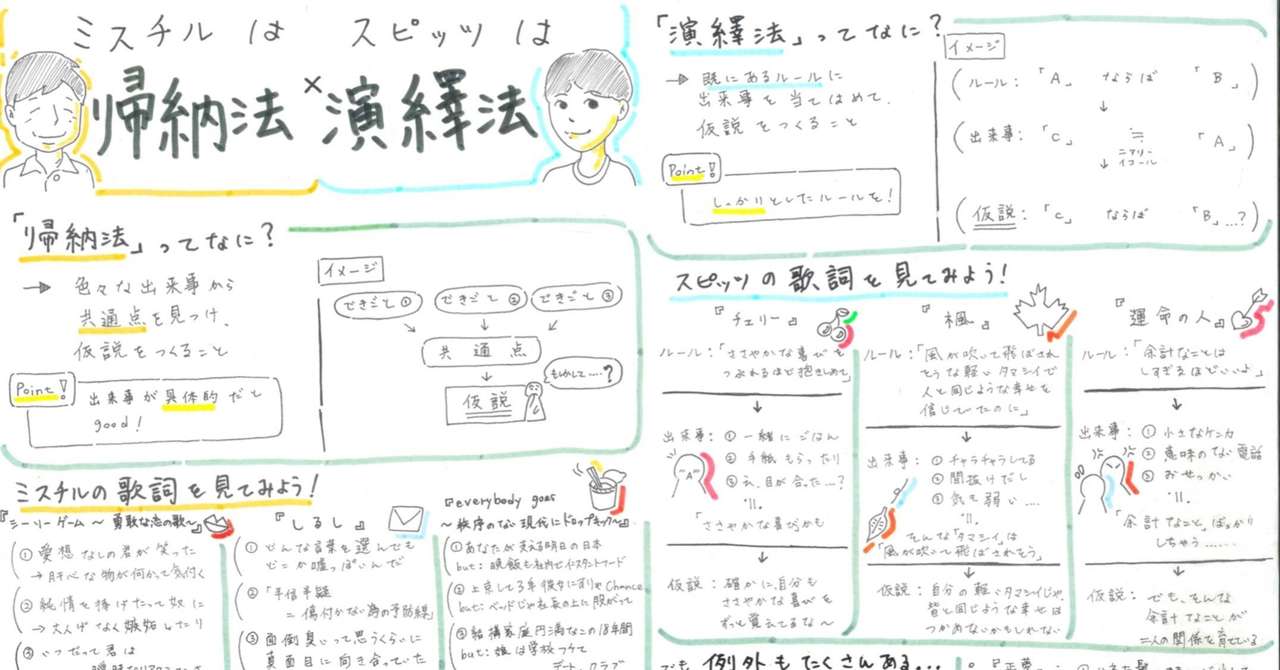 ミスチルは スピッツは
帰納法×演繹法
「帰納法」ってなに?
→ 色々な出来事から
共通点を見つけ、
仮説をつくること
Point!
出来事が具体的だと
good!
イメージ
できごと① できごと② できごと③
共通点
もしかして....?
仮説
ミスチルの歌詞を見てみよう!
『シーソーゲーム 〜勇敢な恋の歌〜』
① 愛想なしの君が笑った
→ 肝心な物が何かって気付く
② 純情を捧げたって奴に
→ 大人げなく嫉妬したり
③ いつだって君は
『しるし』
① どんな言葉を選んでも
どこか嘘っぽいんだ
② 「半信半疑
= 傷付かない為の予防線」
③ 面倒臭いって思うくらいに
真面目に向き合っていた
『everybody goes
〜秩序のない現代にドロップキック〜』
① あなたが支える明日の日本
but: 晩飯も社内でインスタントフード
② 上京して3年 彼女にすりゃChance
but: ベッドじゃ社長の上に股がって
③ 結構家庭円満なこの18年間
but: 娘は学校フケて
デートクラブ
「演繹法」ってなに?
→ 既にあるルールに
出来事を当てはめて、
仮説をつくること
Point!
しっかりとしたルールを!
イメージ
(ルール:「A」 ならば 「B」)
↓
(出来事:「C」 ≒ 「A」)
ニアリー
イコール
↓
(仮説:「C」 ならば 「B」...?)
スピッツの歌詞を見てみよう!
『チェリー』
ルール:「ささやかな喜びを
つぶれるほど抱きしめて」
↓
出来事:① 一緒にごはん
② 手紙もらったり
③ え、目が合った...?
「ささやかな喜び」かも
↓
仮説:確かに、自分も
ささやかな喜びを
ずっと覚えてるな〜
『楓』
ルール:「風が吹いて飛ばされ
そうな軽いタマシイで
人と同じような幸せを
信じていたのに」
↓
出来事:① チャラチャラしてる
② 間抜けだし
③ 気も弱い....
そんな「タマシイ」は
「風が吹いて飛ばされそう」
↓
仮説:自分の軽いタマシイじゃ、
皆と同じような幸せは
つかめないかもしれない
『運命の人』
ルール:「余計なことは
しすぎるほどいいよ」
↓
出来事:① 小さなケンカ
② 意味のない電話
③ おせっかい
「余計なこと」ばっかり
しちゃう......
↓
仮説:でも、そんな
余計なことが
二人の関係を育てている
でも 例外もたくさんある...